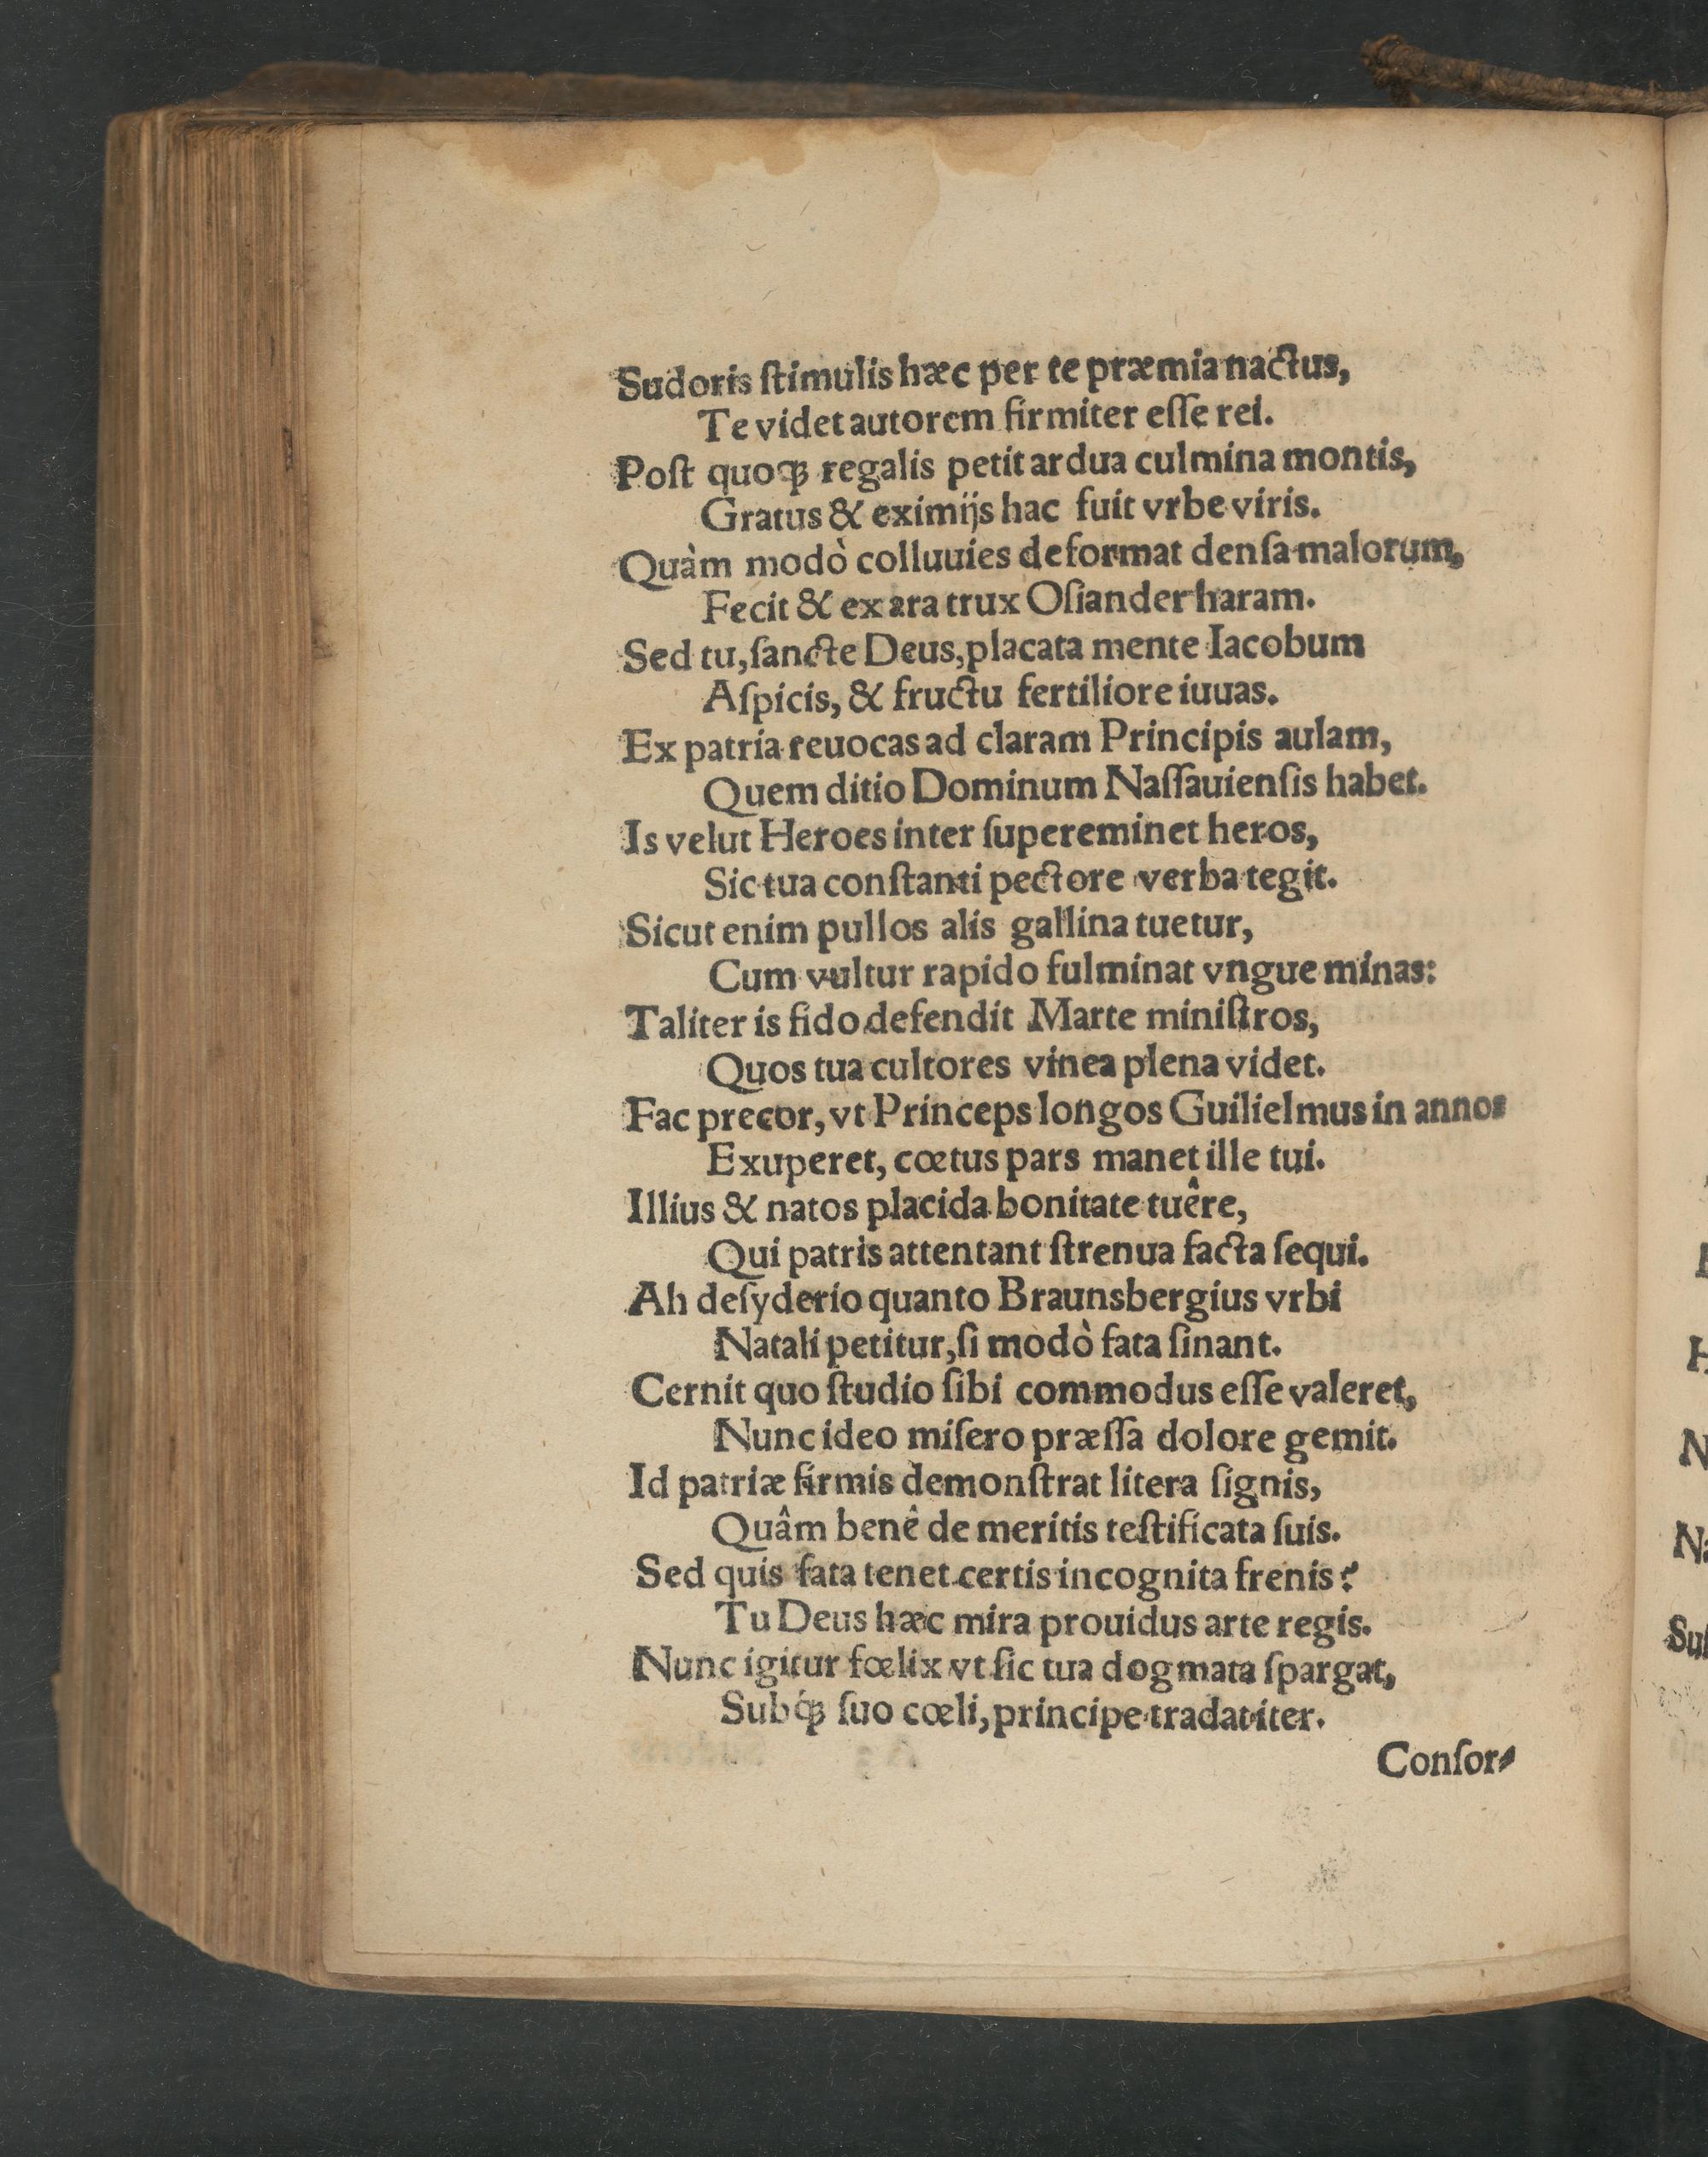 Sudoris ſtimulis hæc per te præmia nactus,
Te videt autorem firmiter eſſe rei.
Poſt quoꝙ regalis petit ardua culmina montis,
Gratus & eximijs hac fuit vrbe viris.
Quàm modò colluuies deformat denſa malorum,
Fecit & ex ara trux Oſiander haram.
Sed tu, ſancte Deus, placata mente Iacobum
Aſpicis, & fructu fertiliore iuuas.
Ex patria reuocas ad claram Principis aulam,
Quem ditio Dominum Naſſauienſis habet.
Is velut Heroes inter ſupereminet heros,
Sic tua conſtanti pectore verba tegit.
Sicut enim pullos alis gallina tuetur,
Cum vultur rapido fulminat vngue minas:
Taliter is fido defendit Marte miniſtros,
Quos tua cultores vinea plena videt.
Fac precor, vt Princeps longos Guilielmus in annos
Exuperet, cœtus pars manet ille tui.
Illius & natos placida bonitate tuêre,
Qui patris attentant ſtrenua facta ſequi.
Ah deſyderio quanto Braunsbergius vrbi
Natali petitur, ſi modò fata ſinant.
Cernit quo ſtudio ſibi commodus eſſe valeret,
Nunc ideo miſero præſſa dolore gemit.
Id patriæ firmis demonſtrat litera ſignis,
Quâm benê de meritis teſtificata ſuis.
Sed quis fata tenet certis incognita frenis?
Tu Deus hæc mira prouidus arte regis.
Nunc igitur fœlix vt ſic tua dogmata ſpargat,
Subꝙ́ ſuo cœli, principe tradat iter.
Conſor⸗
N
Na
Suſ